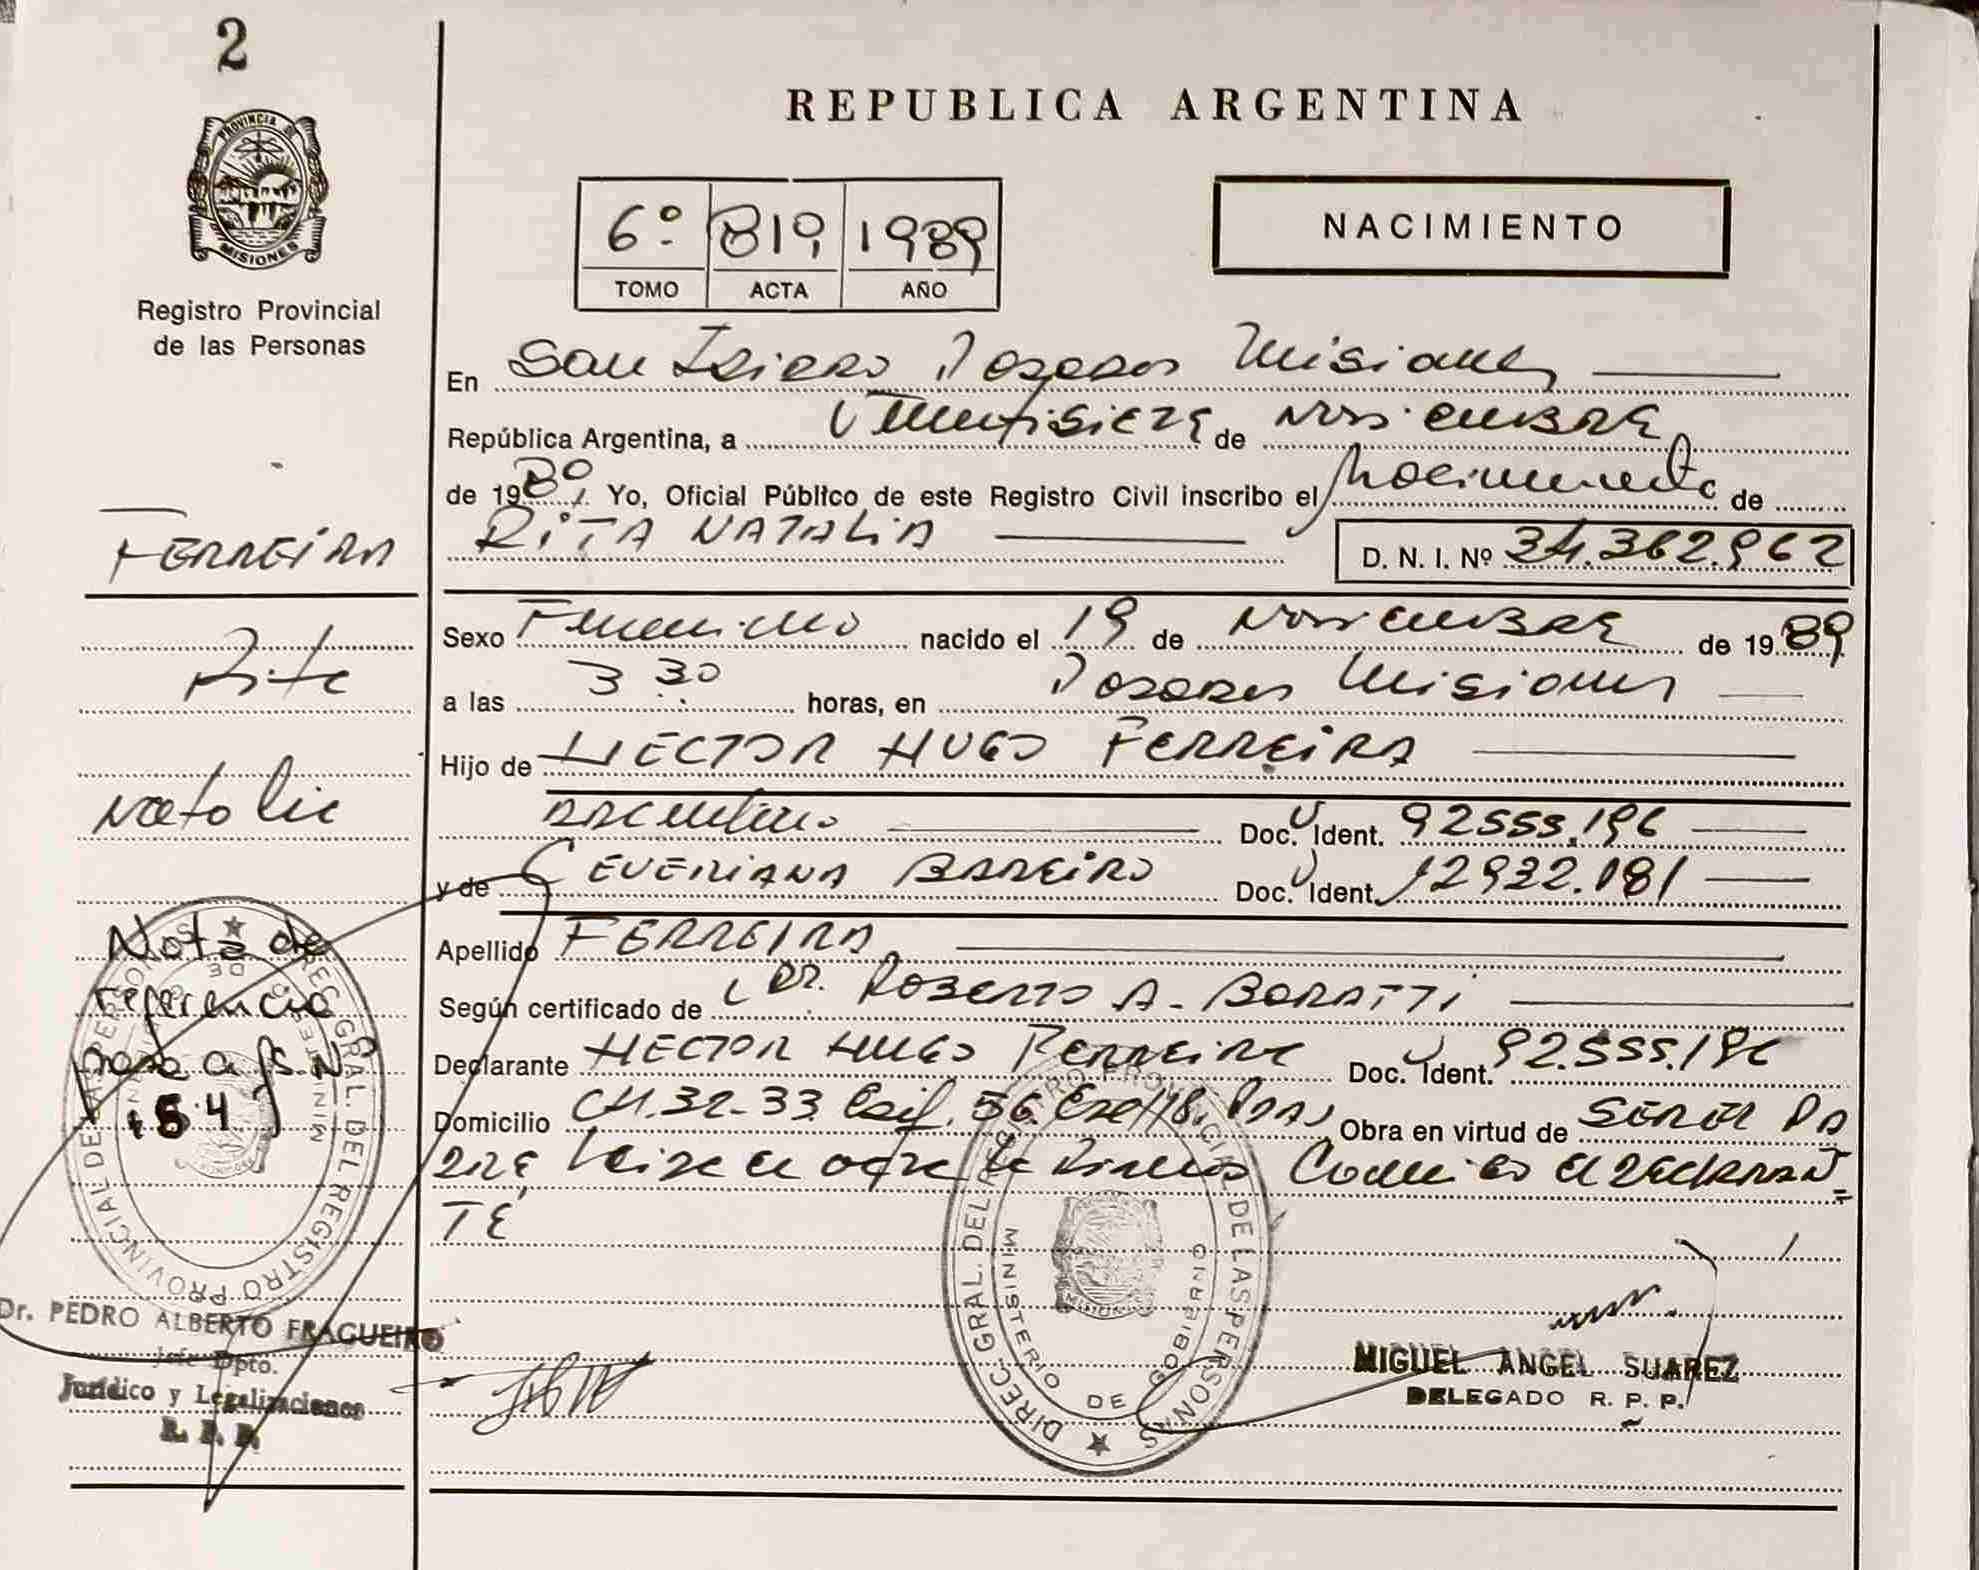 2
REPUBLICA ARGENTINA
PROVINCIA DE MISIONES
Registro Provincial
de las Personas
6º 819 1989
TOMO ACTA AÑO
NACIMIENTO
En San Isidro Posadas Misiones
República Argentina, a Veintisiete de Noviembre
de 1989. Yo, Oficial Público de este Registro Civil inscribo el Nacimiento de
RITA NATALIA D. N. I. Nº 34.362.962
FERREIRA
Rita
Natalia
Sexo Femenino nacido el 19 de Noviembre de 1989
a las 3 30 horas, en Posadas Misiones
Hijo de HECTOR HUGO FERREIRA
argentino Doc. Ident. 92555.196
y de CEVERIANA BAREIRO Doc. Ident. 12932.181
Apellido FERREIRA
Según certificado de Dr. ROBERTO A. BORATTI
Declarante HECTOR HUGO FERREIRA Doc. Ident. 92.555.196
Domicilio CH.32-33 Edif. 56 Obra en virtud de SER EL PA
DRE El DECLARAN=
TE
Nota de
referencia
pasa a fs. Nº
154
DIREC. GRAL. DEL REGISTRO PROVINCIAL DE LAS PERSONAS
MINISTERIO DE GOBIERNO
Dr. PEDRO ALBERTO FRAGUEIRO
Jefe Dpto.
Jurídico y Legalizaciones
R. P. P.
DIREC. GRAL. DEL REGISTRO PROVINCIAL DE LAS PERSONAS
MINISTERIO DE GOBIERNO
MISIONES
MIGUEL ANGEL SUAREZ
DELEGADO R. P. P.